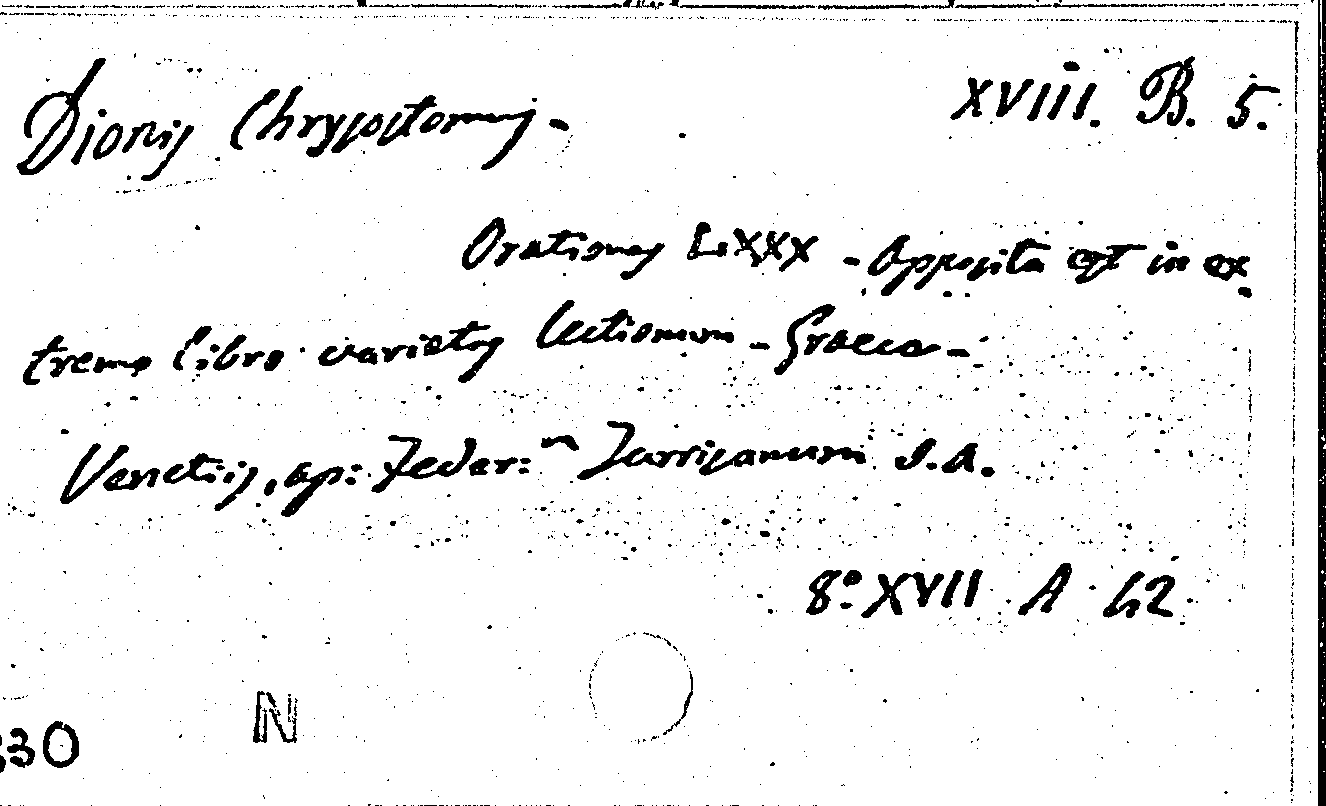 Dionis Chrysostomus - XVIII. B. 5.
Orationes LXXX - Apposita est in ex
tremo libro varietas lectionum - Graece -
Venetiis, ap: Feder:m Turrisanum S.A.
8º XVII A 42
830
N